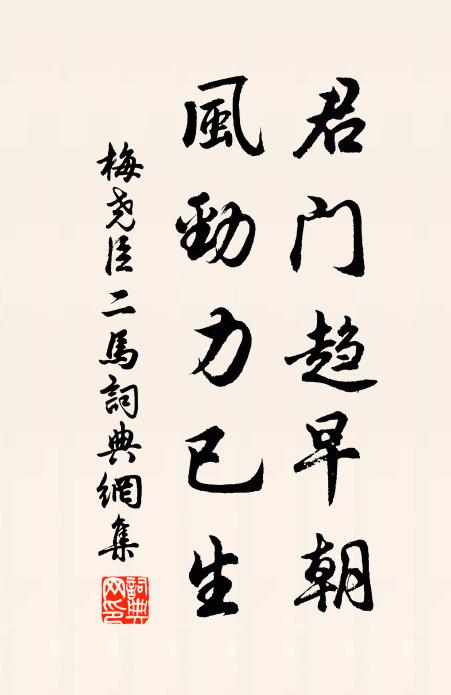 君门趋早朝
風勁力已生
梅尧臣二馬詞典網集
詞典網印